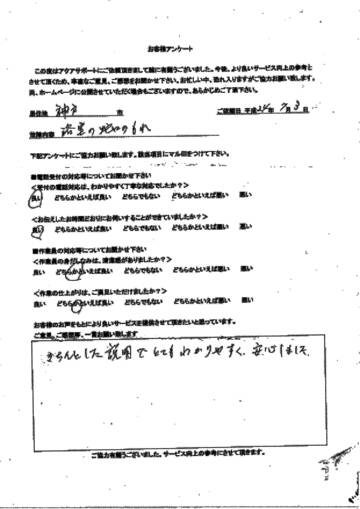 お客様アンケート
この度はアクアサポートにご依頼頂きまして誠に有難うございました。今後、より良いサービス向上の参考と
させて頂くため、率直なご意見、ご感想をお聞かせ下さい。お忙しい中、恐れ入りますがご協力お願い致します。
尚、ホームページに公開させていただく場合もございますので、あらかじめご了承下さい。
居住地 神戸 市 ご依頼日 平成 年 7月 3日
故障内容 浴室の蛇口のもれ
下記アンケートにご協力お願い致します。該当項目にマル印をつけて下さい。
■電話受付の対応等についてお聞かせ下さい
<受付の電話対応は、わかりやすく丁寧な対応でしたか?>
良い どちらかといえば良い どちらでもない どちらかといえば悪い 悪い
<お伝えしたお時間どおりにお伺いすることができていましたか?>
良い どちらかといえば良い どちらでもない どちらかといえば悪い 悪い
■作業員の対応等についてお聞かせ下さい
<作業員の身だしなみは、清潔感がありましたか?>
良い どちらかといえば良い どちらでもない どちらかといえば悪い 悪い
<作業の仕上がりは、ご満足いただけましたか?>
良い どちらかといえば良い どちらでもない どちらかといえば悪い 悪い
お客様のお声をもとにより良いサービスを提供させて頂きたいと思っています。
ご意見、ご感想等、一言お願い致します
きちんとした説明でとてもわかりやすく、安心しました。
ご協力有難うございました。サービス向上の参考にさせて頂きます。